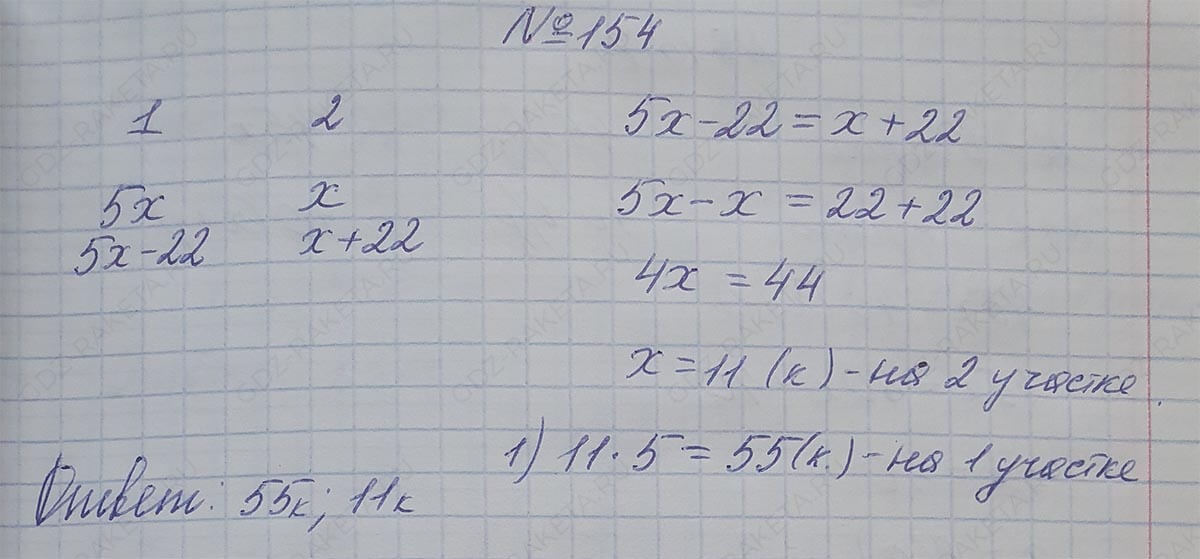 №154
1 2
5x x
5x-22 x+22
5x-22=x+22
5x-x=22+22
4x=44
x=11 (к)-на 2 участке.
1) 11·5=55(к.)-на 1 участке
Ответ: 55к; 11к
GDZ-RAKETA.RU